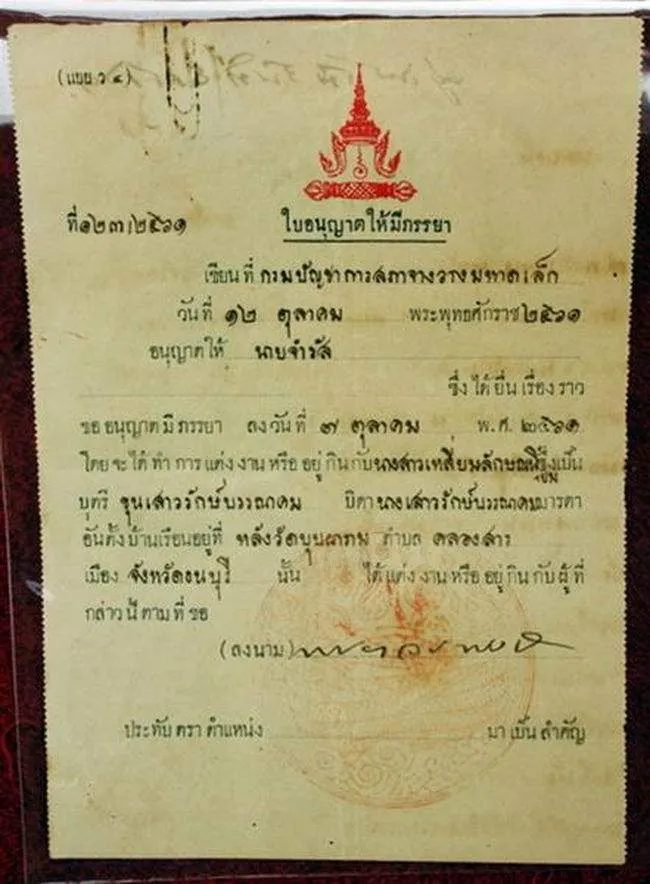 (แบบ ว ๔)
ที่ ๑๒๓/๒๔๖๑
ใบอนุญาตให้มีภรรยา
เขียน ที่ กรมบัญชาการสภาจางวางมหาดเล็ก
วัน ที่ ๑๒ ตุลาคม พระพุทธศักราช ๒๔๖๑
อนุญาตให้ นายจำรัส
ซึ่ง ได้ ยื่น เรื่อง ราว
ขอ อนุญาต มี ภรรยา ลง วัน ที่ ๗ ตุลาคม พ. ศ. ๒๔๖๑
โดย จะ ได้ ทำ การ แต่ง งาน หรือ อยู่ กิน กับ นางสาวเหลี่ยมลักษณ์ ซึ่งเป็น
บุตรี ขุนเสาวรักษ์บรรณาคม บิดา นางเสาวรักษ์บรรณาคม มารดา
อันตั้งบ้านเรือนอยู่ที่ หลังวัดบุบผาราม ตำบล คลองสาร
เมือง จังหวัดธนบุรี นั้น ได้ แต่ง งาน หรือ อยู่ กิน กับ ผู้ ที่
กล่าว นี้ ตาม ที่ ขอ
(ลงนาม)
ประทับ ตรา ตำแหน่ง มา เป็น สำคัญ